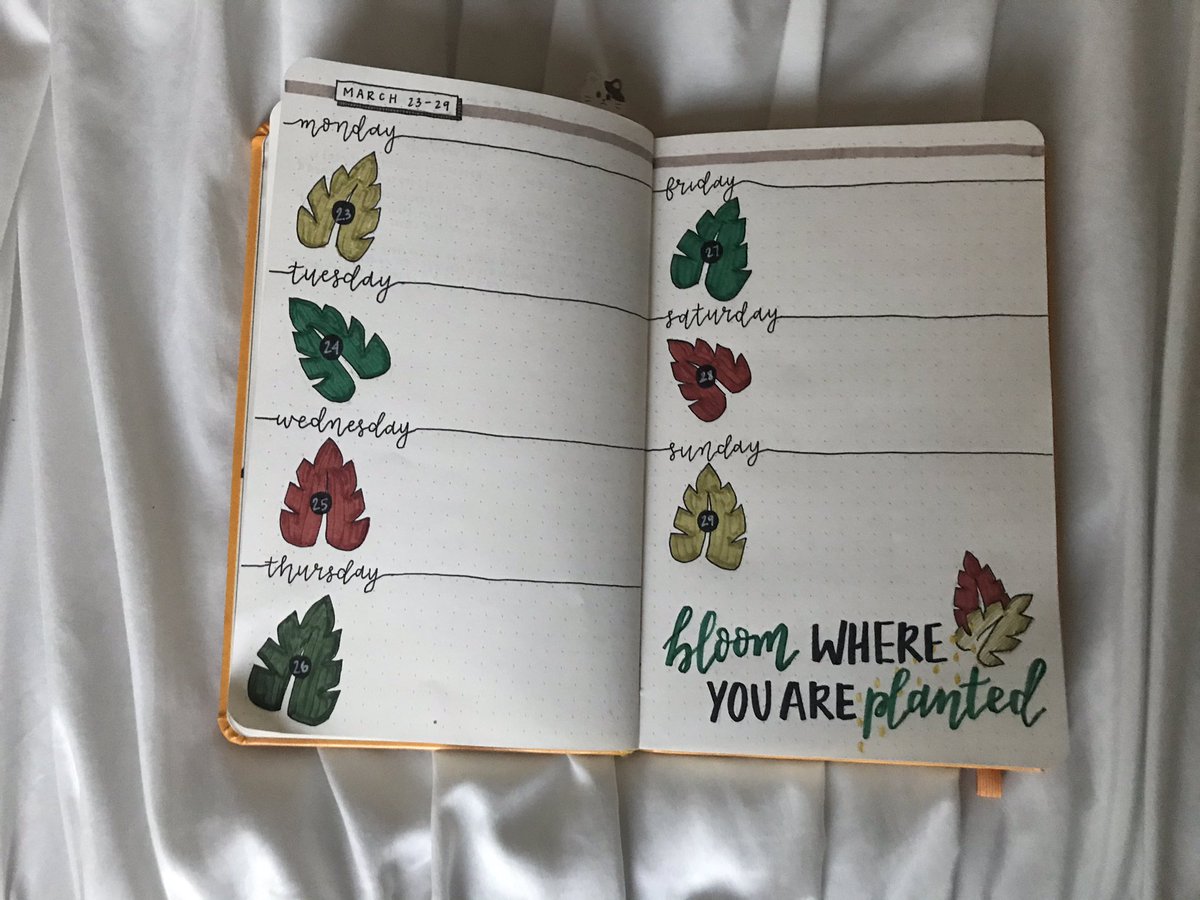 MARCH 23-29
monday
23
tuesday
24
wednesday
25
thursday
26
friday
27
saturday
28
sunday
29
bloom WHERE
YOU ARE planted